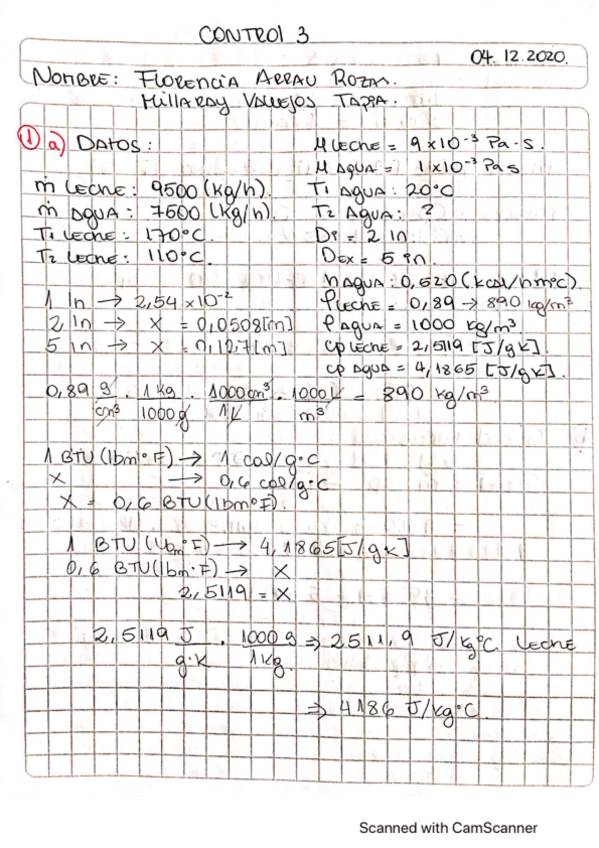 CONTROL 3
04. 12. 2020.
NOMBRE: FLORENCIA ARRAU ROZAS.
MILLARAY VALLEJOS TAPIA.
① a) DATOS:
ṁ LECHE: 9500 (kg/h).
ṁ AGUA: 7500 (kg/h).
T1 LECHE: 170°C.
T2 LECHE: 110°C.
μ LECHE = 9x10⁻³ Pa·s.
μ AGUA = 1x10⁻³ Pa s
T1 AGUA: 20°C
T2 AGUA: ?
Di = 2 in.
DEX = 5 in.
h AGUA: 0,520 (kcal/hm°c).
ρ LECHE → 0,89 → 890 kg/m³
ρ AGUA = 1000 kg/m³.
cp LECHE = 2,5119 [J/gk].
cp AGUA = 4,1865 [J/gk].
1 In → 2,54 x10⁻²
2 In → X = 0,0508[m]
5 in → X = 0,127[m]
0,89 g/cm³ · 1kg/1000g · 1000cm³/1L · 1000L/m³ = 890 kg/m³
1 BTU (lbm°F) → 1 cal/g°C
X → 0,6 cal/g°C
X = 0,6 BTU(lbm°F).
1 BTU (lbm°F) → 4,1865[J/gk]
0,6 BTU(lbm·F) → X
2,5119 = X
2,5119 J/g·K · 1000 g/1kg. ⇒ 2511,9 J/kg°C LECHE
⇒ 4186 J/kg°C.
Scanned with CamScanner